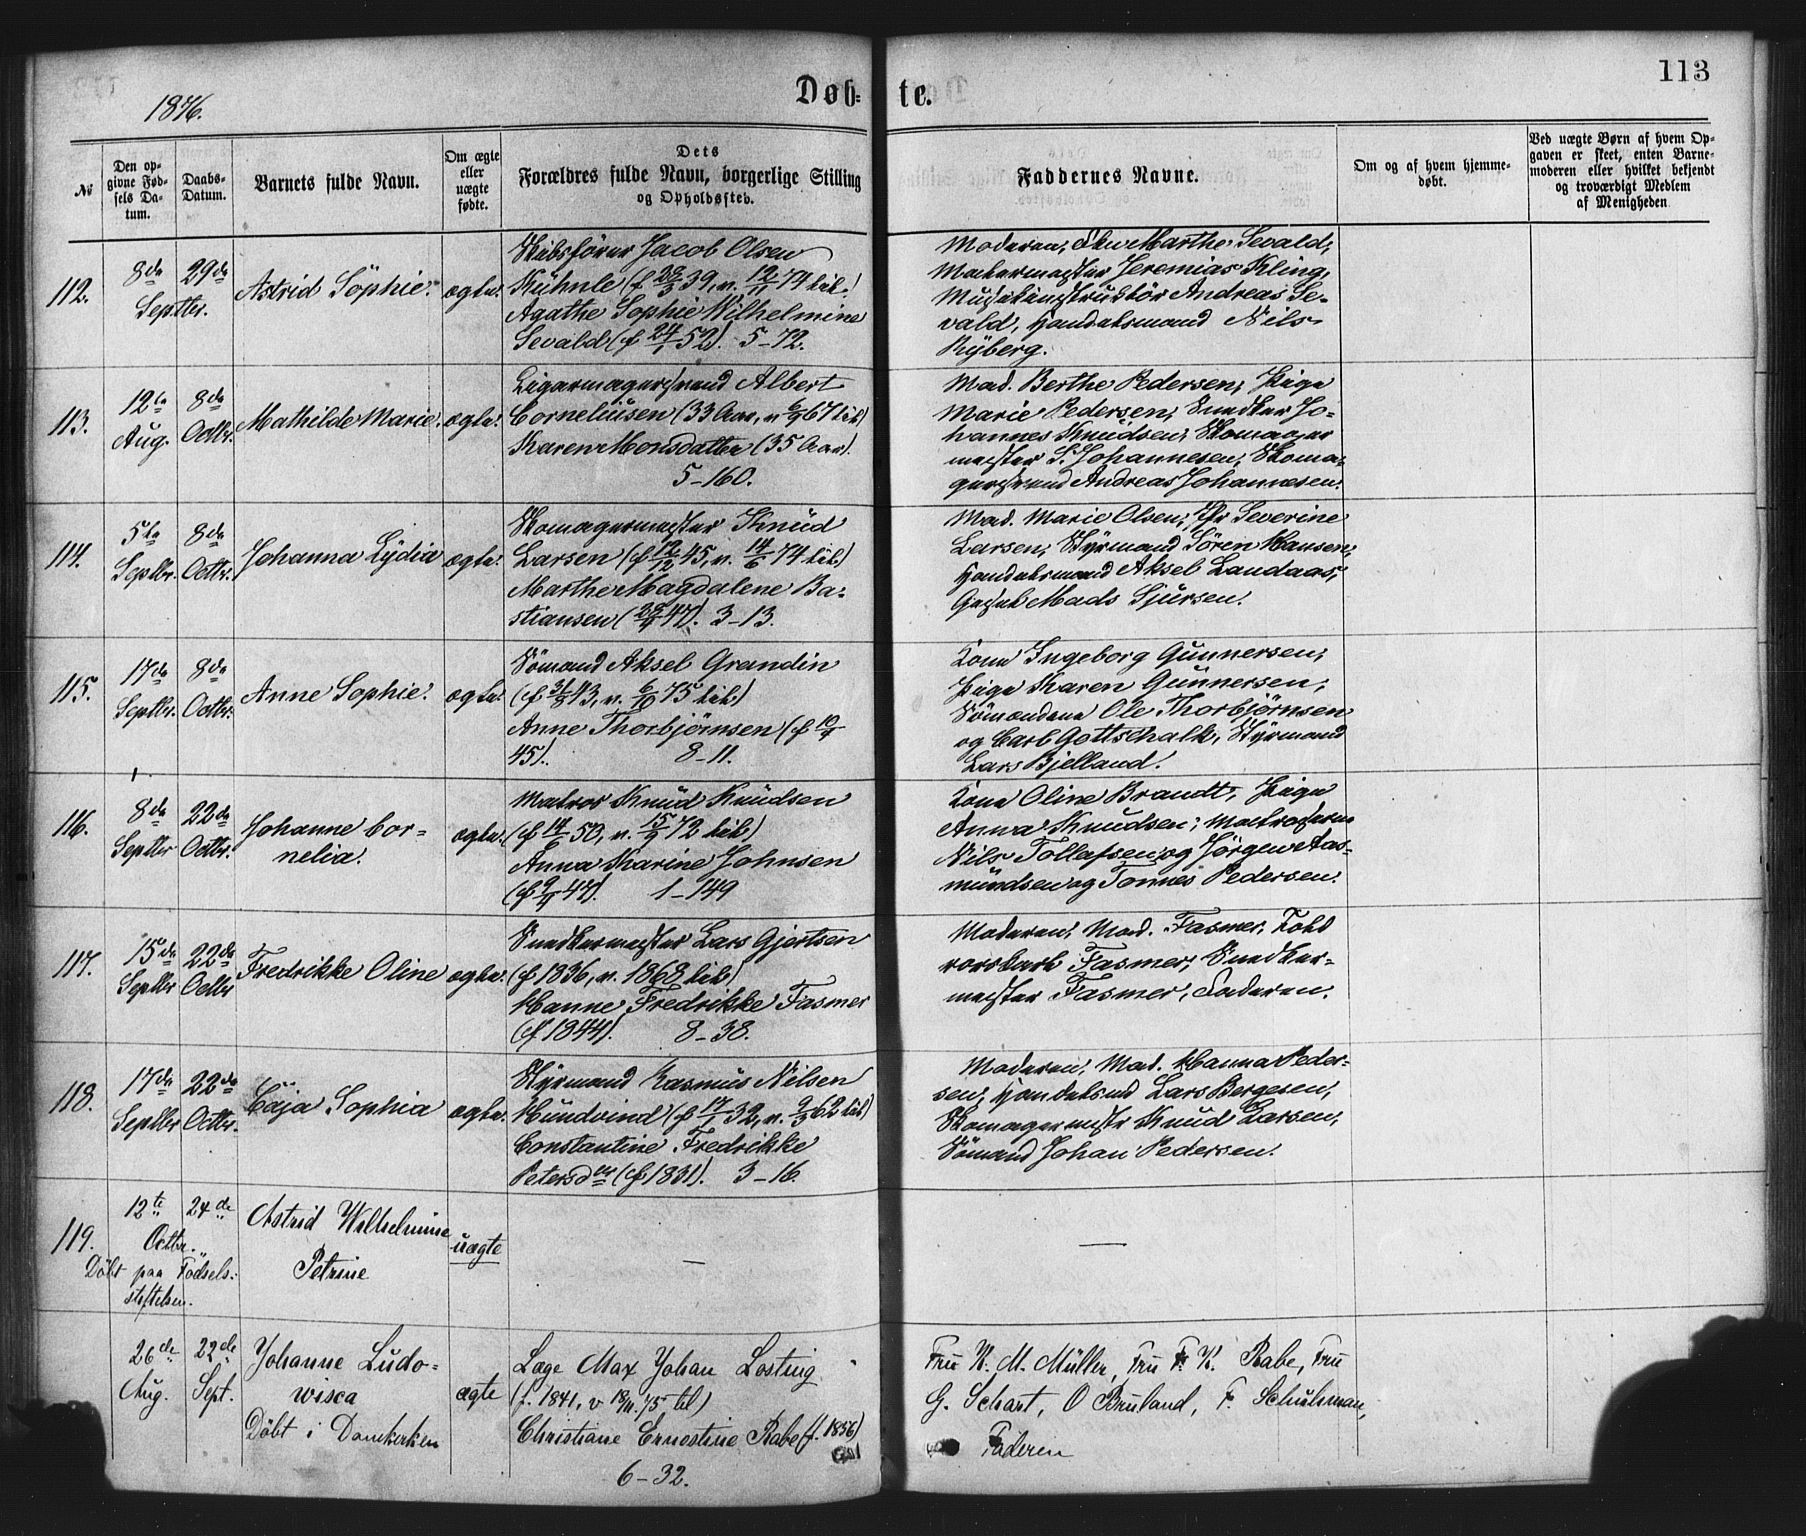 113
1876.
Døb- te.
№
Den opgivne Fødsels Datum.
Daabs-Datum.
Barnets fulde Navn.
Om ægte eller uægte fødte.
Dets Forældres fulde Navn, borgerlige Stilling og Opholdssted.
Faddernes Navne.
Om og af hvem hjemmedøbt.
Ved uægte Børn af hvem Opgaven er skeet, enten Barnemoderen eller hvilket bekjendt og troværdigt Medlem af Menigheden
112. 8de Septbr. 29de Astrid Sophie. ægte.
Skibsfører Jacob Olsen
Kühnle (f 39, v. 74 til)
Agathe Sophie Wilhelmine
Sevald (f 24/1 52). 5-72.
Moderen, Marthe Sevald,
Malermester Jeremias Kling,
Musikinstruktör Andreas Se-
vald, Handelsmand Nils
Ryberg.
113. 12te Aug. 8de Octbr. Mathilde Marie. ægte.
Cigarmagersvend Albert
Corneliusen (33 Aar, v. 67 til)
Karen Monsdatter (35 Aar).
5-160.
Mad. Berthe Pedersen, Pige
Marie Pedersen, Snedker Jo-
hannes Knudsen, Skomager
mester S. Johannesen, Skoma-
gersvend Andreas Johannesen.
114. 5te Septbr. 8de Octbr. Johanna Lydia ægte.
Skomagermester Knud
Larsen (f 12/12 45, v. 14/6 74 til)
Marthe Magdalene Ba-
stiansen ( 47). 3-13.
Mad. Marie Olsen, Severine
Larsen, Styrmand Sören Hansen,
Handelsmand Aksel Landaas,
Mads Sjursen.
115. 17de Septbr. 8de Octbr. Anne Sophie. ægte.
Sömand Aksel Grandin
(f 43, v. 75 til)
Anne Thorbjörnsen (f
45). 8-11.
Kone Ingeborg Gunnersen,
Pige Karen Gunnersen,
Sömændene Ole Thorbjörnsen
og Carl Gottschalk, Styrmand
Lars Bjelland.
116. 8de Septbr 22de Octbr. Johanne Cor-
nelia. ægte.
Matros Knud Knudsen
(f 50, v. 72 til)
Anna Karine Johnsen
(f 47). 1-149
Kone Oline Brandt, Pige
Anna Knudsen, Matroserne
Nils Tollafsen og Jörgen Aas-
mundsen og Tönnes Pedersen.
117. 15de Septbr 22de Octbr Fredrikke Oline ægte.
Snedkermester Lars Gjertsen
(f 1836, v. 1868 til)
Hanne Fredrikke Fasmer
(f 1844). 8-38.
Moderen, Mad. Fasmer, Told
rorskarl Fasmer, Snedker-
mester Fasmer, Faderen.
118. 17de Septbr 22de Octbr. Caja Sophia ægte.
Styrmand Rasmus Nilsen
Hundvind (f 32, v. 62 til)
Constantine Fredrikke
Petersd (f 1831). 3-16.
Moderen, Mad. Hanna Peder-
sen, Lars Bergesen,
Skomagermestr Knud Larsen,
Sömand Johan Pedersen.
119. 12te Octbr. 24de Astrid Wilhelmine
Petrine uægte — —
Döbt paa Födsels-
stiftelsen.
26de Aug. 22de Sept. Johanne Ludo-
wisca ægte
Döbt i Domkirken
Læge Max Johan Losting
(f. 1841, v 75 til)
Christiane Ernestine Rabe (f. 1856)
6-32.
Fru K. M. Müller, Fru F. K. Rabe, Fru
G. Schart, O Bruland, F. Schulsman,
Faderen